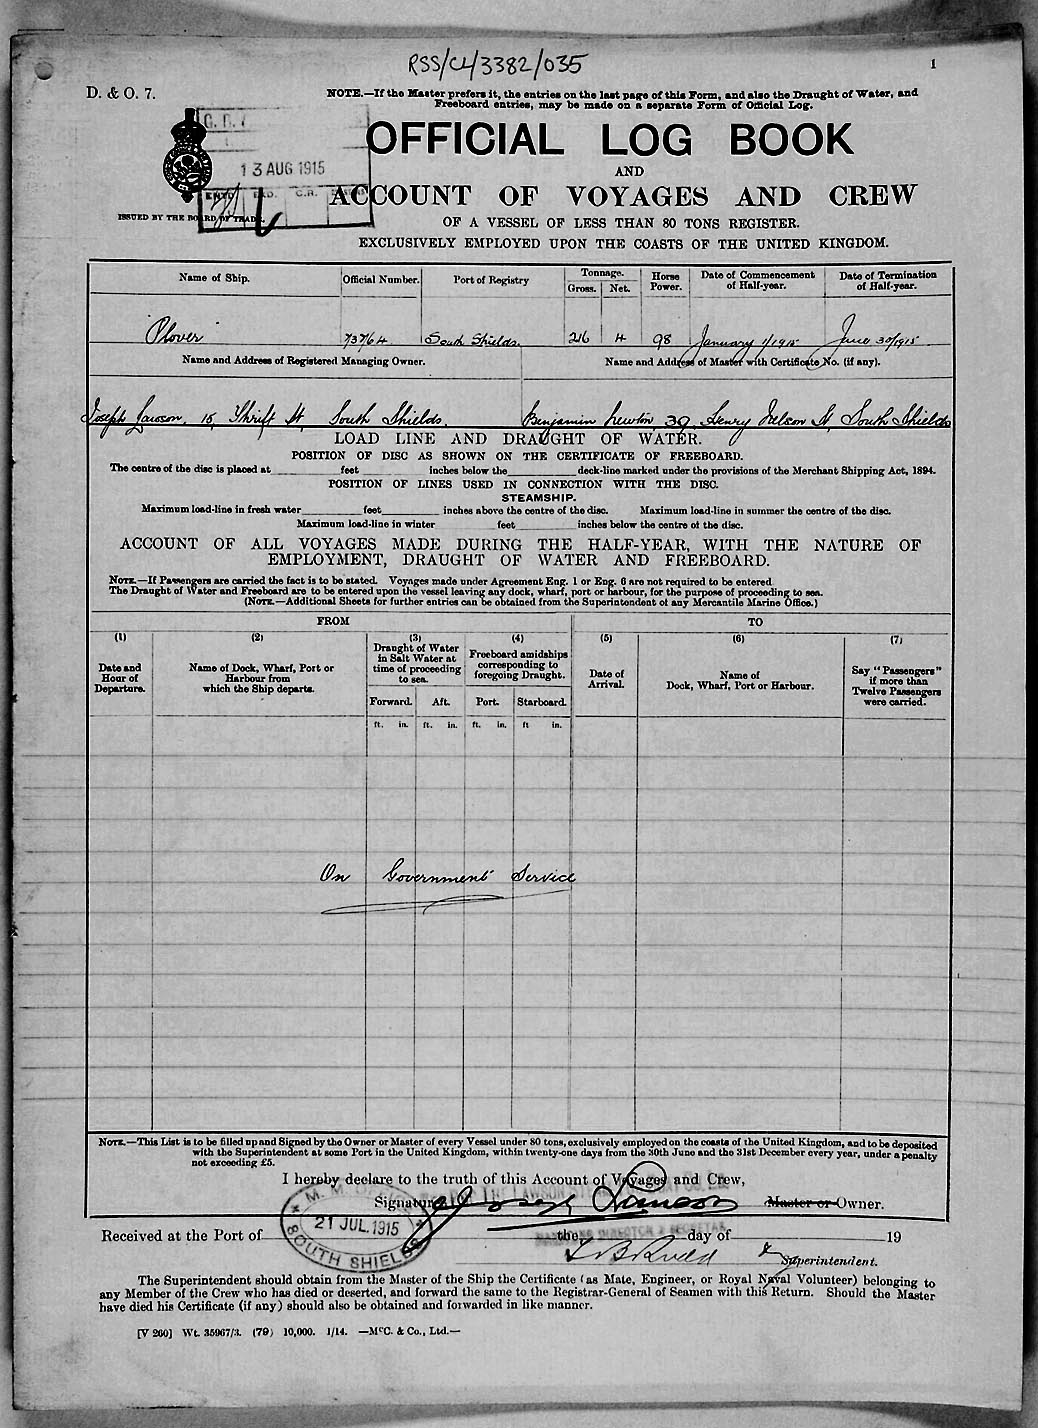 RSS/CL/3382/035
1
D. & O. 7.
NOTE.—If the Master prefers it, the entries on the last page of this Form, and also the Draught of Water, and
Freeboard entries, may be made on a separate Form of Official Log.
OFFICIAL LOG BOOK
13 AUG 1915
AND
ACCOUNT OF VOYAGES AND CREW
ISSUED BY THE BOARD OF TRADE.
OF A VESSEL OF LESS THAN 80 TONS REGISTER.
EXCLUSIVELY EMPLOYED UPON THE COASTS OF THE UNITED KINGDOM.
Name of Ship. Official Number. Port of Registry Tonnage. Gross. Net. Horse Power. Date of Commencement of Half-year. Date of Termination of Half-year.
"Plover" 73764 South Shields. 26 4 98 January 1/1915 June 30/1915
Name and Address of Registered Managing Owner. Name and Address of Master with Certificate No. (if any).
Joseph Lawson, 18, Thrift St, South Shields. Benjamin Newton, 39, Henry Nelson St, South Shields
LOAD LINE AND DRAUGHT OF WATER.
POSITION OF DISC AS SHOWN ON THE CERTIFICATE OF FREEBOARD.
The centre of the disc is placed at feet inches below the deck-line marked under the provisions of the Merchant Shipping Act, 1894.
POSITION OF LINES USED IN CONNECTION WITH THE DISC.
STEAMSHIP.
Maximum load-line in fresh water feet inches above the centre of the disc. Maximum load-line in summer the centre of the disc.
Maximum load-line in winter feet inches below the centre of the disc.
ACCOUNT OF ALL VOYAGES MADE DURING THE HALF-YEAR, WITH THE NATURE OF
EMPLOYMENT, DRAUGHT OF WATER AND FREEBOARD.
NOTE.—If Passengers are carried the fact is to be stated. Voyages made under Agreement Eng. 1 or Eng. 6 are not required to be entered
The Draught of Water and Freeboard are to be entered upon the vessel leaving any dock, wharf, port or harbour, for the purpose of proceeding to sea.
(NOTE.—Additional Sheets for further entries can be obtained from the Superintendent of any Mercantile Marine Office.)
FROM TO
(1) (2) (3) (4) (5) (6) (7)
Date and Hour of Departure. Name of Dock, Wharf, Port or Harbour from which the Ship departs. Draught of Water in Salt Water at time of proceeding to sea. Freeboard amidships corresponding to foregoing Draught. Date of Arrival. Name of Dock, Wharf, Port or Harbour. Say "Passengers" if more than Twelve Passengers were carried.
Forward. Aft. Port. Starboard.
ft. in. ft. in. ft. in. ft in.
On Government Service
NOTE.—This List is to be filled up and Signed by the Owner or Master of every Vessel under 80 tons, exclusively employed on the coasts of the United Kingdom, and to be deposited
with the Superintendent at some Port in the United Kingdom, within twenty-one days from the 30th June and the 31st December every year, under a penalty
not exceeding £5.
I hereby declare to the truth of this Account of Voyages and Crew,
Signature Joseph Lawson Master or Owner.
21 JUL 1915
SOUTH SHIELDS
Received at the Port of the day of 19
Superintendent.
The Superintendent should obtain from the Master of the Ship the Certificate (as Mate, Engineer, or Royal Naval Volunteer) belonging to
any Member of the Crew who has died or deserted, and forward the same to the Registrar-General of Seamen with this Return. Should the Master
have died his Certificate (if any) should also be obtained and forwarded in like manner.
[V 260] Wt. 35967/3. (79) 10,000. 1/14. —McC. & Co., Ltd.—